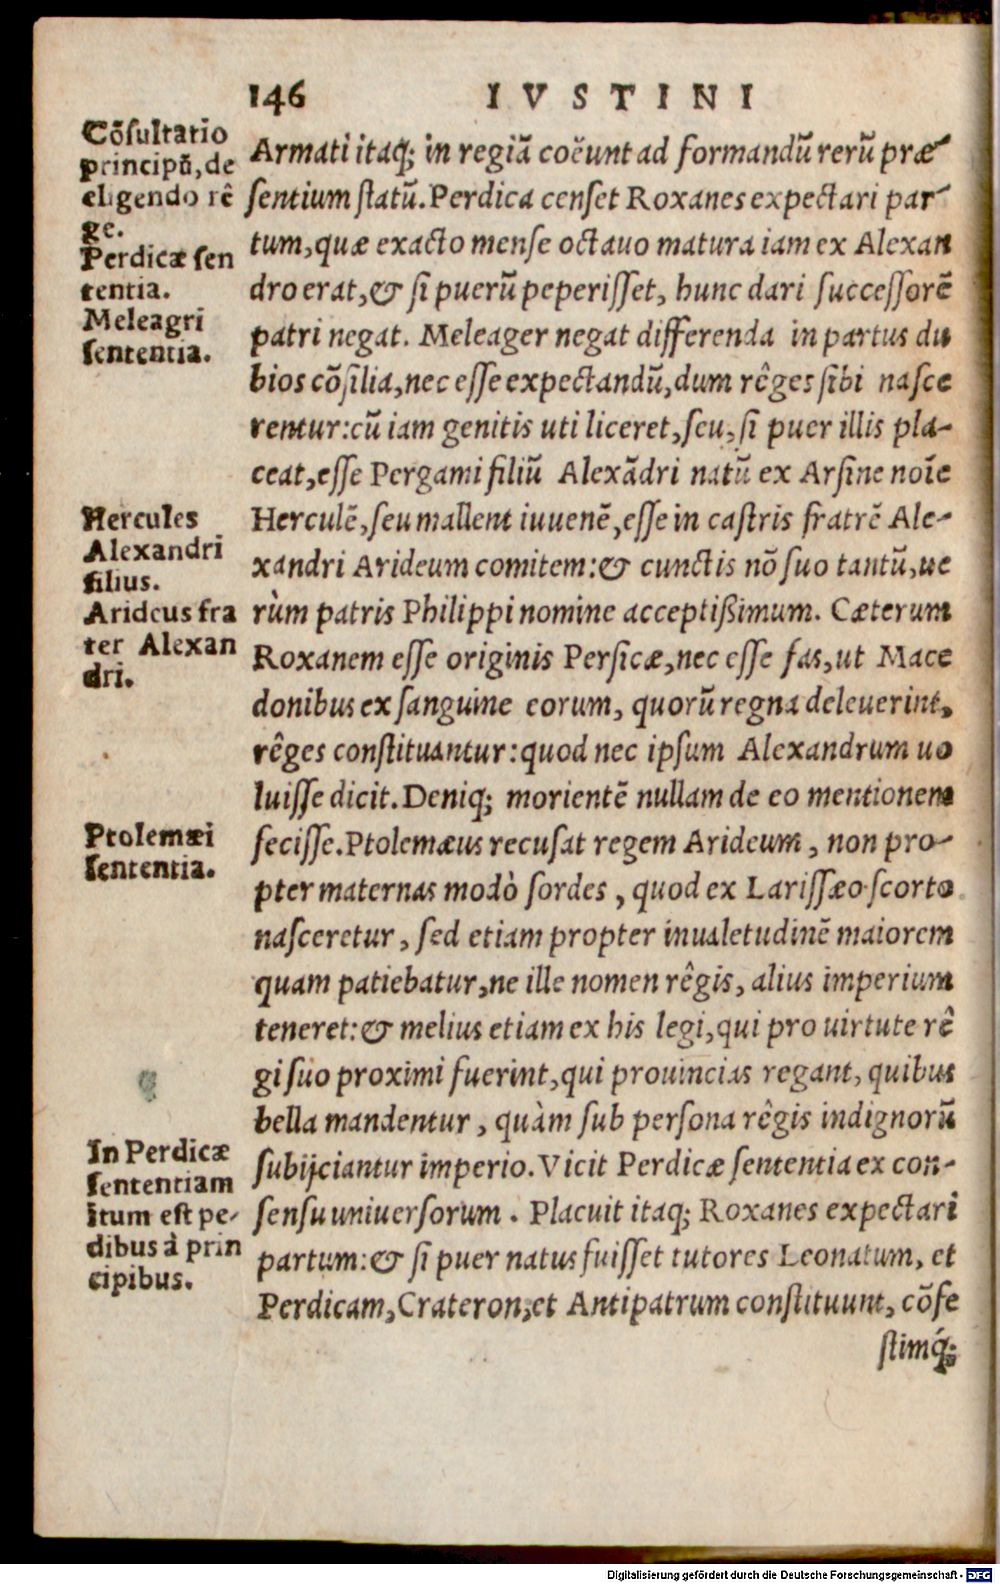 146 IVSTINI
Cõsultatio
principũ, de
eligendo rê
ge.
Perdicæ sen
tentia.
Meleagri
sententia.
Hercules
Alexandri
filius.
Arideus fra
ter Alexan
dri.
Ptolemæi
sententia.
In Perdicæ
sententiam
itum est pe-
dibus à prin
cipibus.
Armati itaq; in regiã coëunt ad formandũ rerũ præ-
sentium statũ. Perdica censet Roxanes expectari par-
tum, quæ exacto mense octauo matura iam ex Alexan
dro erat, & si puerũ peperisset, hunc dari successorẽ
patri negat. Meleager negat differenda in partus du
bios cõsilia, nec esse expectandũ, dum rêges sibi nasce
rentur: cũ iam genitis uti liceret, seu, si puer illis pla-
ceat, esse Pergami filiũ Alexãdri natũ ex Arsine noīe
Herculẽ, seu mallent iuuenẽ, esse in castris fratrẽ Ale-
xandri Arideum comitem: & cunctis nõ suo tantũ, ue
rùm patris Philippi nomine acceptißimum. Cæterum
Roxanem esse originis Persicæ, nec esse fas, ut Mace
donibus ex sanguine eorum, quorũ regna deleuerint,
rêges constituantur: quod nec ipsum Alexandrum uo
luisse dicit. Deniq; morientẽ nullam de eo mentionem
fecisse. Ptolemæus recusat regem Arideum, non pro-
pter maternas modò sordes, quod ex Larissæo scorto
nasceretur, sed etiam propter inualetudinẽ maiorem
quam patiebatur, ne ille nomen rêgis, alius imperium
teneret: & melius etiam ex his legi, qui pro uirtute rê
gi suo proximi fuerint, qui prouincias regant, quibus
bella mandentur, quàm sub persona rêgis indignorũ
subijciantur imperio. Vicit Perdicæ sententia ex con-
sensu uniuersorum. Placuit itaq; Roxanes expectari
partum: & si puer natus fuisset tutores Leonatum, et
Perdicam, Crateron, et Antipatrum constituunt, cõfe
stimq́;
Digitalisierung gefördert durch die Deutsche Forschungsgemeinschaft - DFG